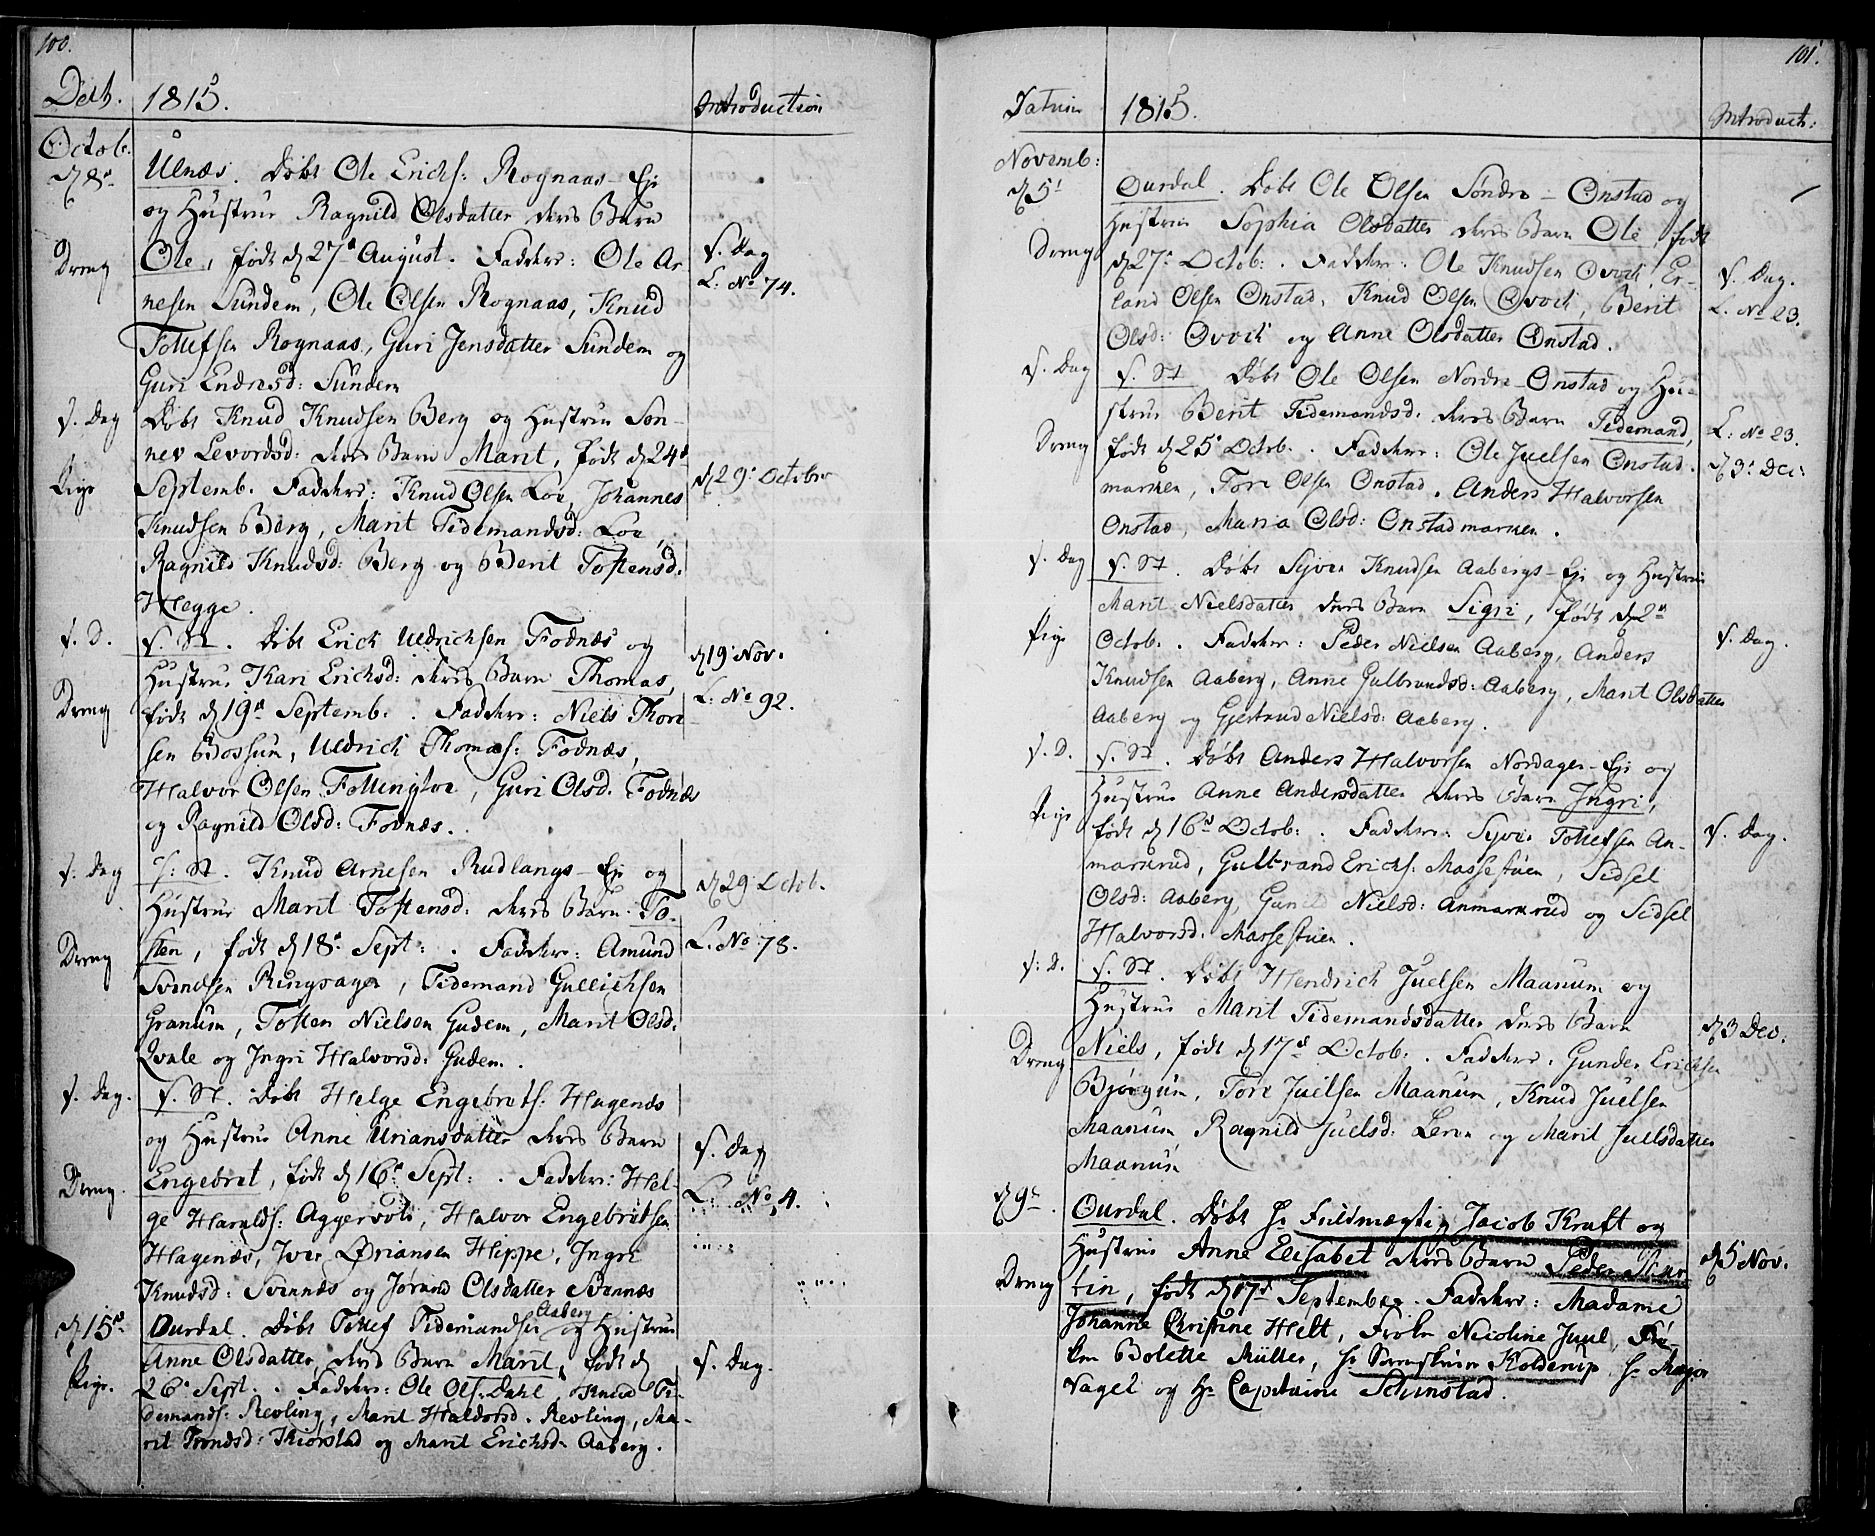 100.
Octob.
1815.
Introduction
d 8de
Ulnæs. Døbt Ole Erichs: Rognaas-Eje
og Hustrue Ragnild Olsdatter deres Barn
Dreng
Ole, født d 27de August. Faddere: Ole Ar
s. Dag
L: No 74.
nesen Sundem, Ole Olsen Rognaas, Knud
Tollefsen Rognaas, Guri Jensdatter Sundem og
Guri Endresd: Sundem
s. Dag
Døbt Knud Knudsen Berg og Hustrue Søn-
nev Levordsd: deres Barn Marit, født d 24de
Pige
Septemb. Faddere: Knud Olsen Loe, Johannes
d 29de Octobr
Knudsen Berg, Marit Tidemandsd: Loe,
Ragnild Knudsd: Berg og Berit Tostensd.
Hegge.
s. D.
s. St. Døbt Erick Uldrichsen Fodnæs og
d 19de Nov.
Hustrue Kari Erichsd: deres Barn Thomas,
L: No 92.
Dreng
født d 19de Septemb. . Faddere: Niels Thore
sen Bossum, Uldrich Thomas: Fodnæs,
Halvor Olsen Follingloe, Guri Olsd. Fodnæs
og Ragnild Olsd: Fodnæs.
s. Dag
s: St. Knud Arnesen Rudlangs-Eje og
d 29 Octob.
Hustrue Marit Tostensd: deres Barn To-
Dreng
sten, født d 18de Sept: . Faddere: Amund
L. No 78.
Svendsen Ringsager, Tidemand Gullichsen
Granum, Tosten Nielsen Gudem, Marit Olsd.
Qvale og Ingri Halvorsd: Gudem.
s. Dag.
s. St. Døbt Helge Engebrets: Hagenæs
og Hustrue Anne Uriansdatter deres Barn
s. Dag
Dreng.
Engebret, født d 16de Sept: . Faddere: Hel-
L: No 4.
ge Haralds: Aggersvold, Halvor Engebretsen
Hagenæs, Iver Ørjansen Hippe, Ingri
Knudsd: Svennæs og Jørand Olsdatter Svennæs
d 15de
Ourdal. Døbt Tollef Tidemandsen Aaberg og Hustrue
Anne Olsdatter deres Barn Marit, født d
s. Dag.
Pige.
26de Sept. . Faddere: Ole Ols: Dahl, Knud Ti-
demands: Revling, Marit Haldorsd. Revling, Ma-
rit Trondsd: Thorstad og Marit Erichsd. Aaberg.
101.
Datum
1815.
Introduct:
Novemb:
d 5te
Ourdal. Døbt Ole Olsen Søndre-Onstad og
Hustrue Sophia Olsdatter deres Barn Ole født
Dreng
d 27de Octob: . Faddere: Ole Knudsen Qvoch, Er-
s. Dag.
land Olsen Onstad, Knud Olsen Qvoch, Berit
L. No 23.
Olsd: Qvoch og Anne Olsdatter Onstad.
s. Dag
s. St. Døbt Ole Olsen Nordre-Onstad og Hu-
strue Berit Tidemandsd: deres Barn Tidemand,
L: No 23.
Dreng
født d 25de Octob. . Faddere: Ole Juelsen Onstad-
d 3de Dec:
marken, Tore Olsen Onstad, Anders Halvorsen
Onstad, Maria Olsd: Onstadmarken.
s. Dag
s. St. Døbt Syver Knudsen Aabergs-Eje og Hustrue
Marit Nielsdatter deres Barn Sigri, født d 2de
Pige
Octob. . Faddere: Peder Nielsen Aaberg, Anders
s. Dag.
Knudsen Aaberg, Anne Gulbrandsd: Aaberg, Marit Olsdatter
Aaberg og Gjertrud Nielsd: Aaberg.
s. D.
s. St. Døbt Anders Halvorsen Nordager-Eje og
Hustrue Anne Andersdatter deres Barn Ingri,
Pige
født d 16de Octob: . Faddere: Syver Tollefsen An-
s. Dag.
markrud, Gulbrand Erichs. Massestuen, Sidsel
Olsd: Aaberg, Gunild Nielsd: Anmarkrud og Sidsel
Halvorsd: Massestuen.
s: D.
s. St. Døbt Hendrich Juelsen Maanum og
Hustrue Marit Tidemandsdatter deres Barn
d 3 Dec.
Dreng
Niels, født d 17de Octob: . Faddere: Gunder Erichsen
Bjørgum, Tore Juelsen Maanum, Knud Juelsen
Maanum, Ragnild Juelsd: Leren og Marit Juelsdatter
Maanum
d 9de.
Ourdal. Døbt Hr Fuldmægtig Jacob Kraft og
Hustrue Anne Elisabet deres Barn Peder
d 5 Nov.
Dreng
tin, født d 17de September. Faddere: Madame
Johanne Christine Helt, Frøkn Nicoline Juul, Frø-
ken Bolette Müller, Hr Sorenskriver Koldenup, Hr Major
Vagel og Hr Capitaine